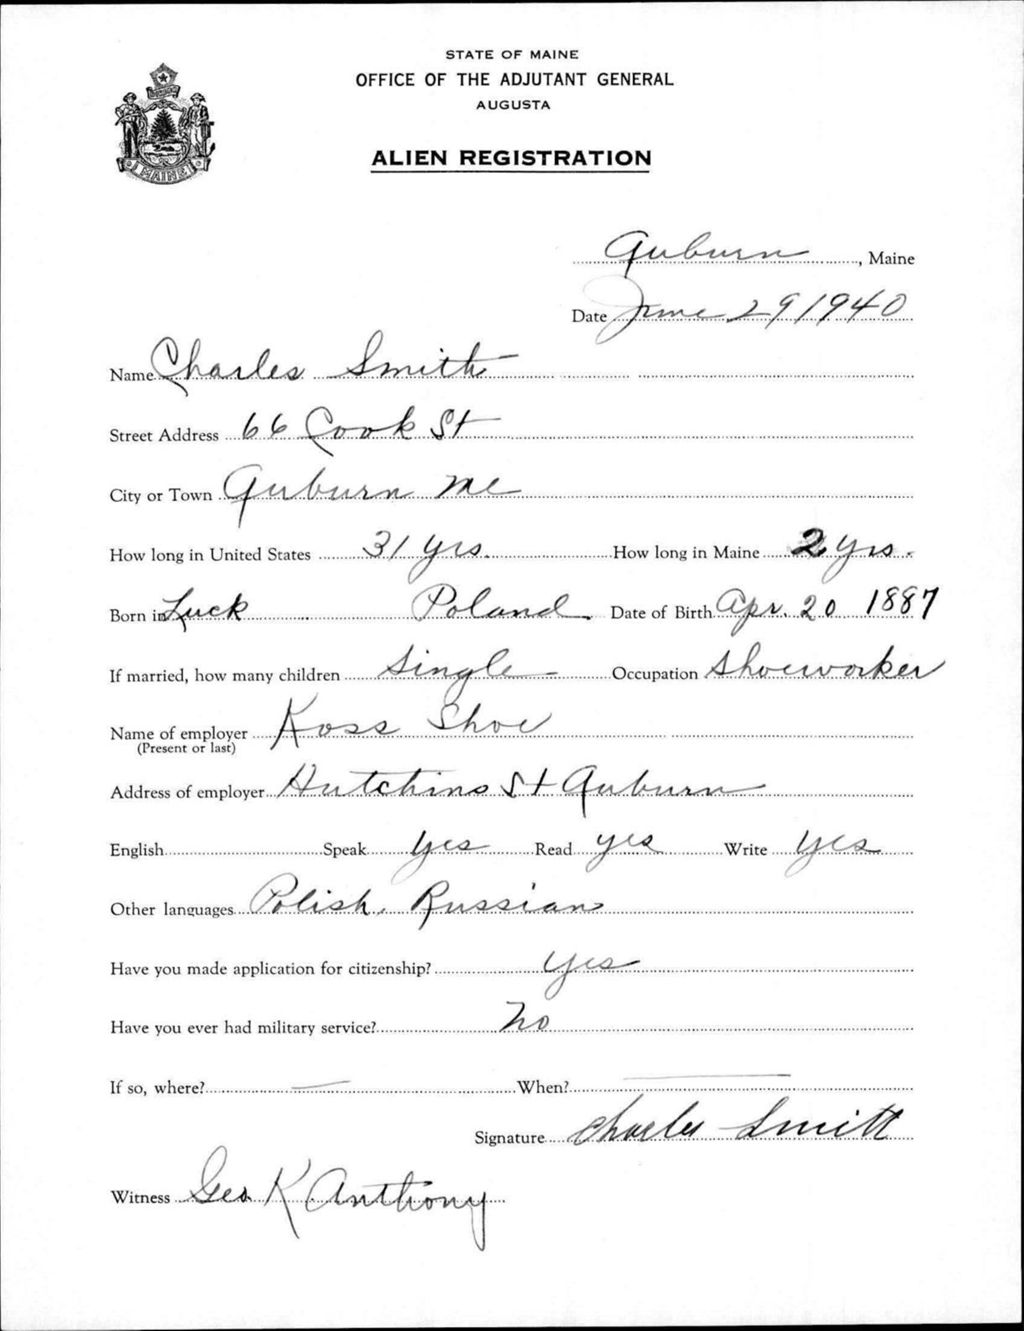 STATE OF MAINE
OFFICE OF THE ADJUTANT GENERAL
AUGUSTA
ALIEN REGISTRATION
MAINE
Auburn, Maine
Date June 29 1940
Name Charles Smith
Street Address 66 Cook St
City or Town Auburn Me
How long in United States 31 yrs. How long in Maine 2 yrs.
Born in Luck Poland Date of Birth Apr. 20 1887
If married, how many children Single Occupation Shoeworker
Name of employer Koss Shoe
(Present or last)
Address of employer Hutchins St Auburn
English Speak yes Read yes Write yes
Other languages Polish, Russian
Have you made application for citizenship? Yes
Have you ever had military service? No
If so, where? — When? —
Signature Charles Smitt
Witness Geo K Anthony